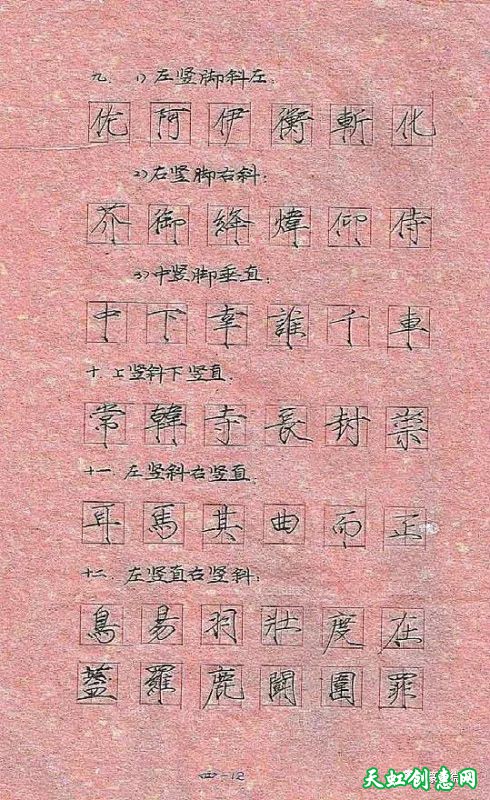 九. 1)左竖脚斜左:
佗阿伊衡斬化
2)右竖脚右斜:
芥御絳煒仰侍
3)中竖脚垂直:
中下幸誰千車
十.上竖斜下竖直.
常韓寺長封
十一.左竖斜右竖直.
耳馬其曲而正
十二.左竖直右竖斜:
鳥易羽壯度在
蓋羅鹿闢圍罪
四-12
天虹创意网